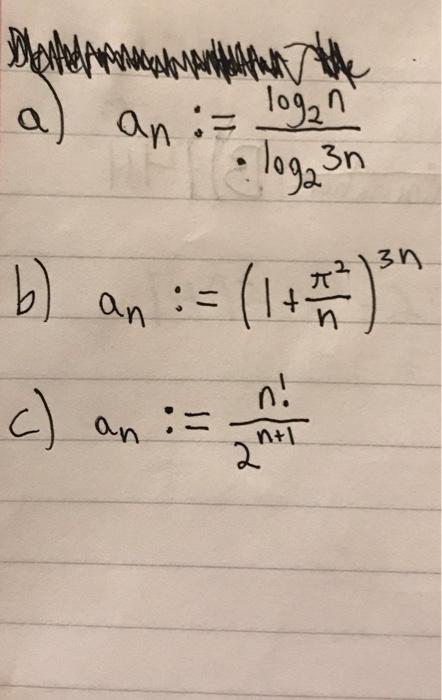 a) aₙ := log₂n / log₂3n
b) aₙ := (1 + π²/n)³ⁿ
c) aₙ := n! / 2ⁿ⁺¹